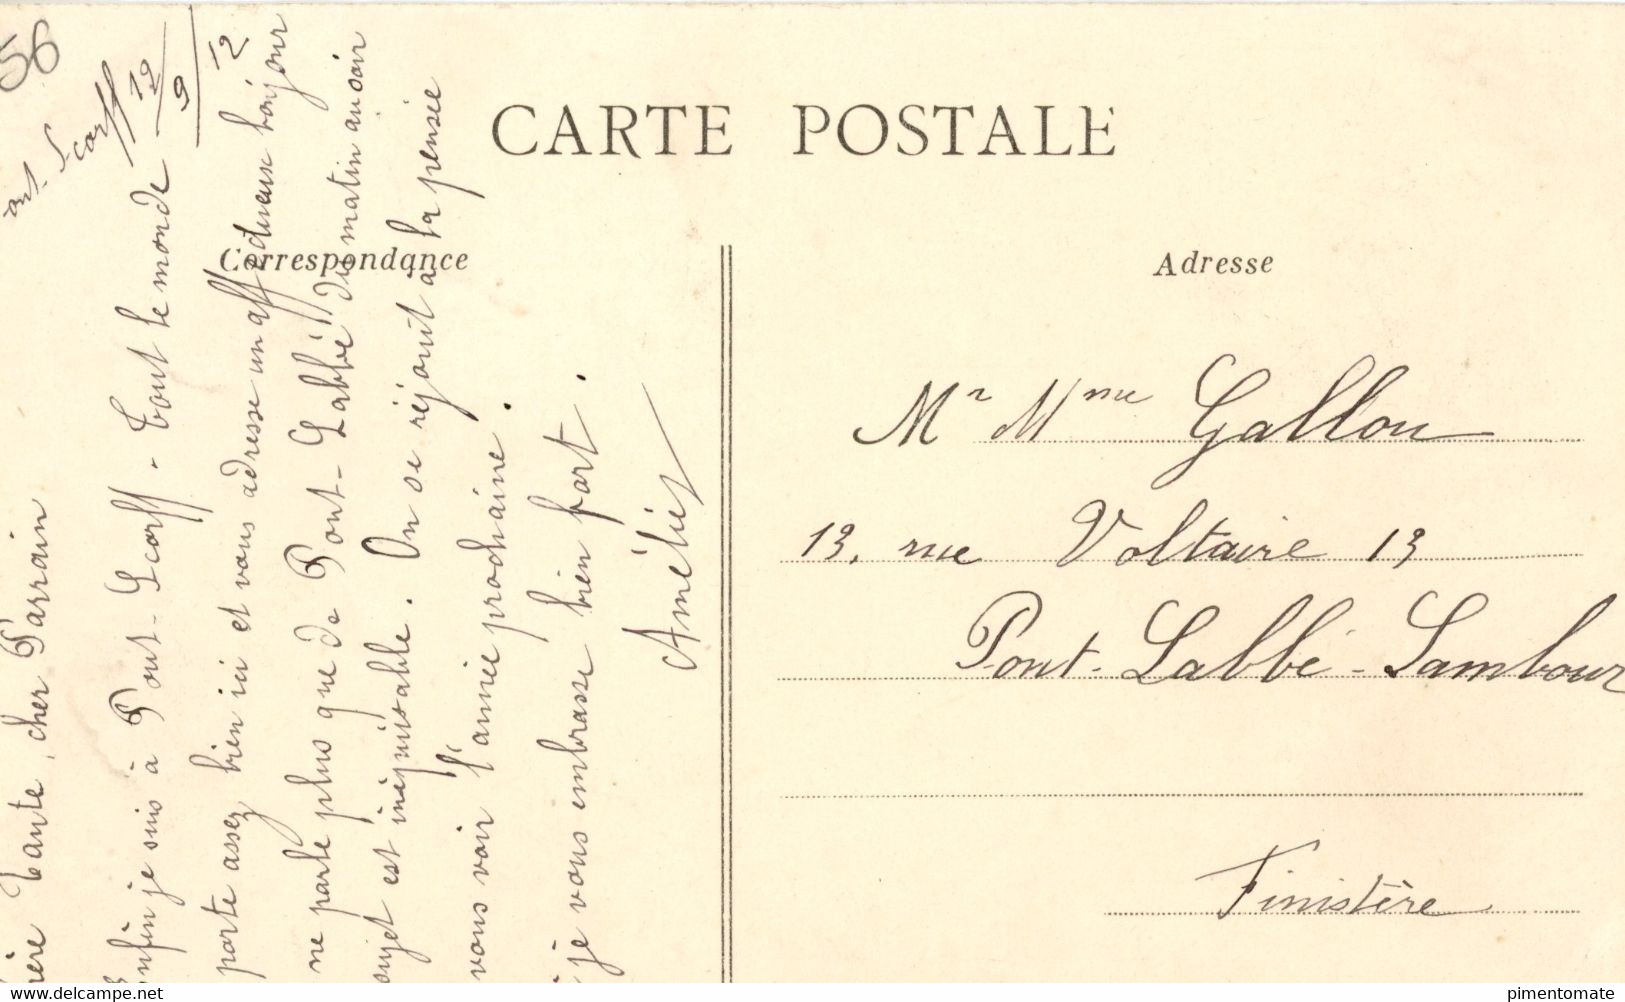 56
CARTE POSTALE
Correspondance
Adresse
ont-Scorff 19/9/12
ère Tante, cher Parrain
Enfin je suis à Pont-Scorff - Tout le monde
se porte assez bien ici et vous adresse un affectueux bonjour
ne parle plus que de Pont-Labbé, du matin au soir
sujet est inépuisable. On se réjouit à la pensée
vous voir l'année prochaine.
je vous embrasse bien fort.
Amélie
Mr Mme Gallou
13, rue Voltaire 13
Pont-Labbé-Lambour
Finistère
pimentomate